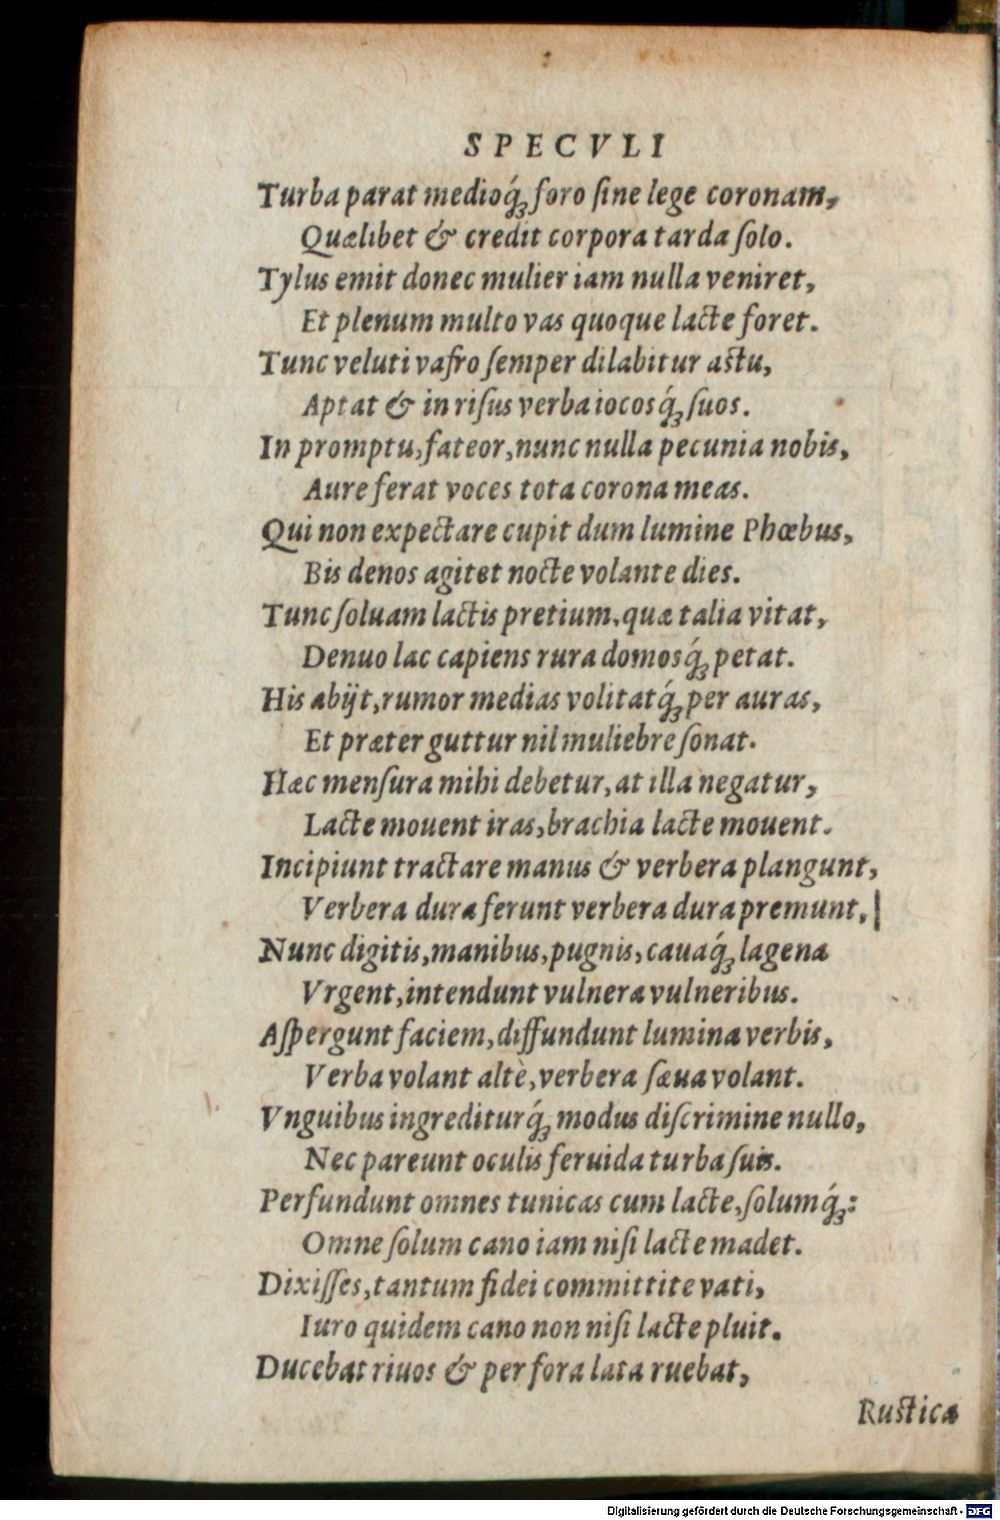 SPECVLI
Turba parat medioq́ꝫ foro ſine lege coronam,
Quælibet & credit corpora tarda ſolo.
Tylus emit donec mulier iam nulla veniret,
Et plenum multo vas quoque lacte foret.
Tunc veluti vafro ſemper dilabitur astu,
Aptat & in riſus verba iocosq́ꝫ ſuos.
In promptu, fateor, nunc nulla pecunia nobis,
Aure ferat voces tota corona meas.
Qui non expectare cupit dum lumine Phœbus,
Bis denos agitet nocte volante dies.
Tunc ſoluam lactis pretium, quæ talia vitat,
Denuo lac capiens rura domosq́ꝫ petat.
His abijt, rumor medias volitatq́ꝫ per auras,
Et præter guttur nil muliebre ſonat.
Hæc menſura mihi debetur, at illa negatur,
Lacte mouent iras, brachia lacte mouent.
Incipiunt tractare manus & verbera plangunt,
Verbera dura ferunt verbera dura premunt,
Nunc digitis, manibus, pugnis, cauaq́ꝫ lagena
Vrgent, intendunt vulnera vulneribus.
Aſpergunt faciem, diffundunt lumina verbis,
Verba volant altè, verbera ſæua volant.
Vnguibus ingrediturq́ꝫ modus diſcrimine nullo,
Nec pareunt oculis feruida turba ſuis.
Perfundunt omnes tunicas cum lacte, ſolumq́ꝫ:
Omne ſolum cano iam niſi lacte madet.
Dixiſſes, tantum fidei committite vati,
Iuro quidem cano non niſi lacte pluit.
Ducebat riuos & per fora lata ruebat,
Rustica
Digitalisierung gefördert durch die Deutsche Forschungsgemeinschaft - DFG